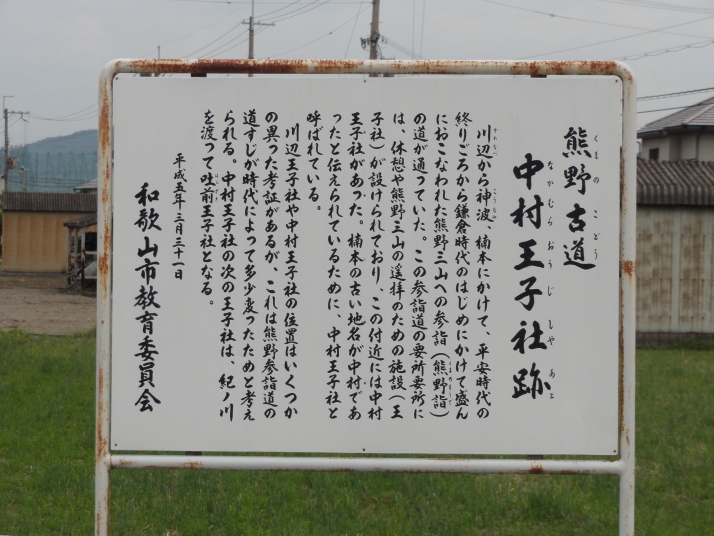 熊野古道
中村王子社跡
川辺から神波、楠本にかけて、平安時代の
終りごろから鎌倉時代のはじめにかけて盛ん
におこなわれた熊野三山への参詣（熊野詣）
の道が通っていた。この参詣道の要所要所に
は、休憩や熊野三山の遥拝のための施設（王
子社）が設けられており、この付近には中村
王子社があった。楠本の古い地名が中村であ
ったと伝えられているために、中村王子社と
呼ばれている。
川辺王子社や中村王子社の位置はいくつか
の異った考証があるが、これは熊野参詣道の
道すじが時代によって多少変ったためと考え
られる。中村王子社の次の王子社は、紀ノ川
を渡って吐前王子社となる。
平成五年三月三十一日
和歌山市教育委員会